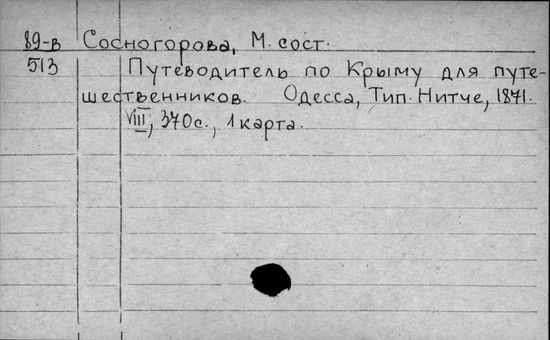 89-в Сосногорова, М. сост.
513 Путеводитель по Крыму для путе-
шественников. Одесса, Тип. Нитче, 1871.
VIII, 370 с., 1 карта.